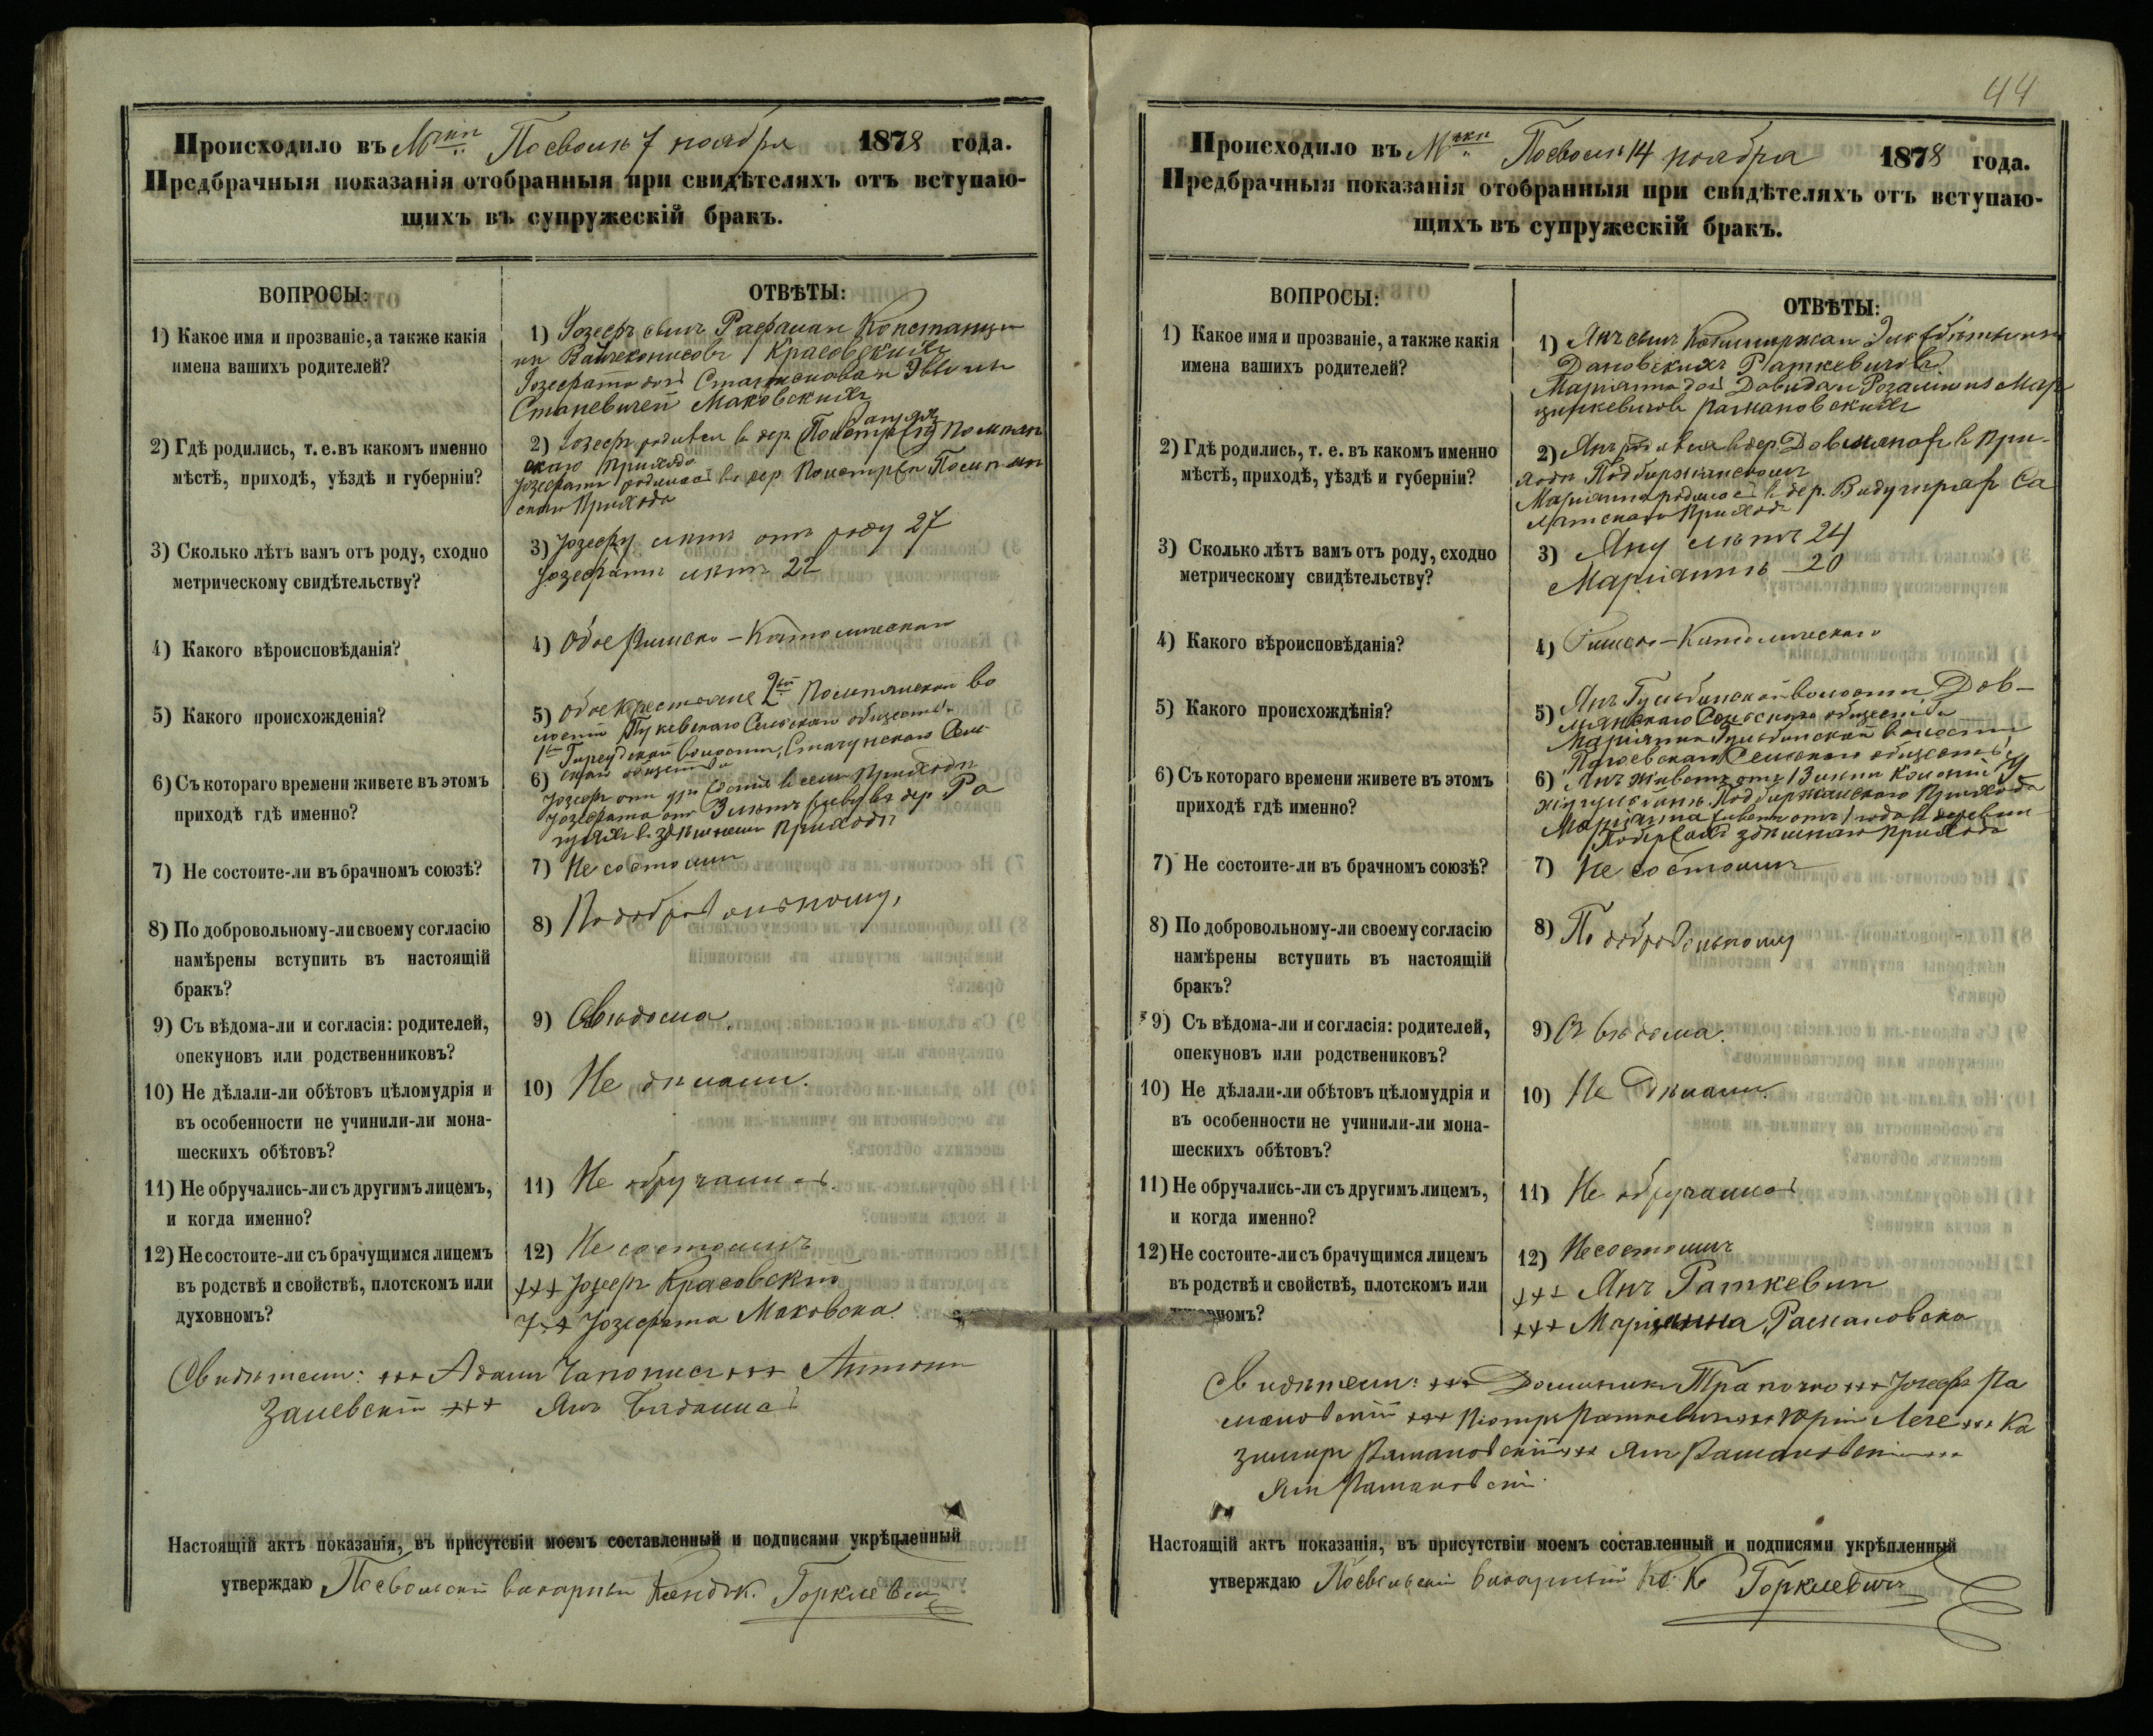 Происходило въ Мчкѣ Посволь 7 ноября 1878 года.
Предбрачныя показанія отобранныя при свидѣтеляхъ отъ вступаю-
щихъ въ супружескій бракъ.
ВОПРОСЫ:
ОТВѢТЫ:
1) Какое имя и прозваніе, а также какія
имена вашихъ родителей?
1) Іозефъ сынъ Рафаила и Констанціи
Красовскихъ
Іозефата дочь
Станевичей Маковскихъ
2) Гдѣ родились, т. е. въ какомъ именно
мѣстѣ, приходѣ, уѣздѣ и губерніи?
2) Іозефъ родился въ дер.
скаго прихода
Іозефата родилась въ дер.
скаго прихода
3) Сколько лѣтъ вамъ отъ роду, сходно
метрическому свидѣтельству?
3) Іозефу лѣтъ отъ роду 27
Іозефатѣ лѣтъ 22
4) Какого вѣроисповѣданія?
4) Обое Римско-Католическаго
5) Какого происхожденія?
5) Обое крестьяне 2ой во
лости Сельскаго общества
волости,
6) Съ котораго времени живете въ этомъ
приходѣ гдѣ именно?
6) скаго общества
Іозефъ отъ въ семъ приходѣ
Іозефата отъ 3 лѣтъ въ дер. Ра
въ здѣшнемъ приходѣ
7) Не состоите-ли въ брачномъ союзѣ?
7) Не состоимъ
8) По добровольному-ли своему согласію
намѣрены вступить въ настоящій
бракъ?
8) По добровольному,
9) Съ вѣдома-ли и согласія: родителей,
опекуновъ или родственниковъ?
9) Свѣдома.
10) Не дѣлали-ли обѣтовъ цѣломудрія и
въ особенности не учинили-ли мона-
шескихъ обѣтовъ?
10) Не дѣлали.
11) Не обручались-ли съ другимъ лицемъ,
и когда именно?
11) Не обручались.
12) Не состоите-ли съ брачущимся лицемъ
въ родствѣ и свойствѣ, плотскомъ или
духовномъ?
12) Не состоимъ
+++ Іозефъ Красовскій
+++ Іозефата Маковска.
Свидѣтели: +++ Адамъ Чапонисъ +++ Антонъ
Залевскій +++ Янъ
Настоящій актъ показанія, въ присутсвіи моемъ составленный и подписями укрѣпленный
утверждаю Посвольскій викарный Ксендзъ К. Горклевичъ
44
Происходило въ Мчкѣ Посволь 14 ноября 1878 года.
Предбрачныя показанія отобранныя при свидѣтеляхъ отъ вступаю-
щихъ въ супружескій бракъ.
ВОПРОСЫ:
ОТВѢТЫ:
1) Какое имя и прозваніе, а также какія
имена вашихъ родителей?
1) Янъ сынъ Казимиржа и Эльжбѣты
Дановскихъ Раткевичовъ.
Маріянна дочь Давида и Розаліи изъ Мар
цинкевичовъ Рамановскихъ
2) Гдѣ родились, т. е. въ какомъ именно
мѣстѣ, приходѣ, уѣздѣ и губерніи?
2) Янъ родился въ дер. въ при-
ходѣ Подбиржанскомъ
Маріянна родилась въ дер. Са
лятскаго прихода
3) Сколько лѣтъ вамъ отъ роду, сходно
метрическому свидѣтельству?
3) Яну лѣтъ 24
Маріяннѣ — 20
4) Какого вѣроисповѣданія?
4) Римско-Католическаго
5) Какого происхождѣнія?
5) Янъ Гульбинской волости Дов-
Сельскаго общества
Маріянна Гульбинской волости
Сельскаго общества
6) Съ котораго времени живете въ этомъ
приходѣ гдѣ именно?
6) Янъ живетъ отъ
Подбиржанскаго прихода
Маріянна живетъ отъ 1 года въ деревни
здѣшнаго прихода
7) Не состоите-ли въ брачномъ союзѣ?
7) Не состоимъ
8) По добровольному-ли своему согласію
намѣрены вступить въ настоящій
бракъ?
8) По добровольному
9) Съ вѣдома-ли и согласія: родителей,
опекуновъ или родствениковъ?
9) Съ вѣдома.
10) Не дѣлали-ли обѣтовъ цѣломудрія и
въ особенности не учинили-ли мона-
шескихъ обѣтовъ?
10) Не дѣлали.
11) Не обручались-ли съ другимъ лицемъ,
и когда именно?
11) Не обручались
12) Не состоите-ли съ брачущимся лицемъ
въ родствѣ и свойствѣ, плотскомъ или
номъ?
12) Несостоимъ
+++ Янъ Раткевич
+++ Маріянна Рамановска
Свидѣтели: +++ Доминикъ Трапочко +++ Іозефъ Ра
мановскій +++ Петръ Раткевичъ +++ Юрій Леге +++ Ка
зимиръ Рамановскій +++ Янъ Рамановскій +++
Янъ Рамановскій.
Настоящій актъ показанія, въ присутствіи моемъ составленный и подписями укрѣпленный
утверждаю Посвольскій викарный Кс. К Горклевичъ